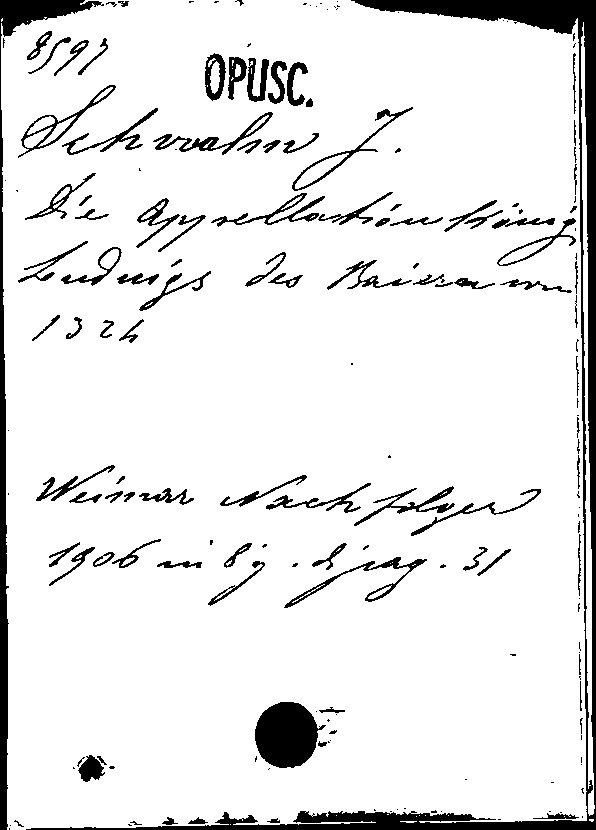 8597
OPUSC.
Schwalm J.
Die Appellation König
Ludwigs des Baiern von
1324
Weimar Nachfolger
1906 in 8º. di pag. 31